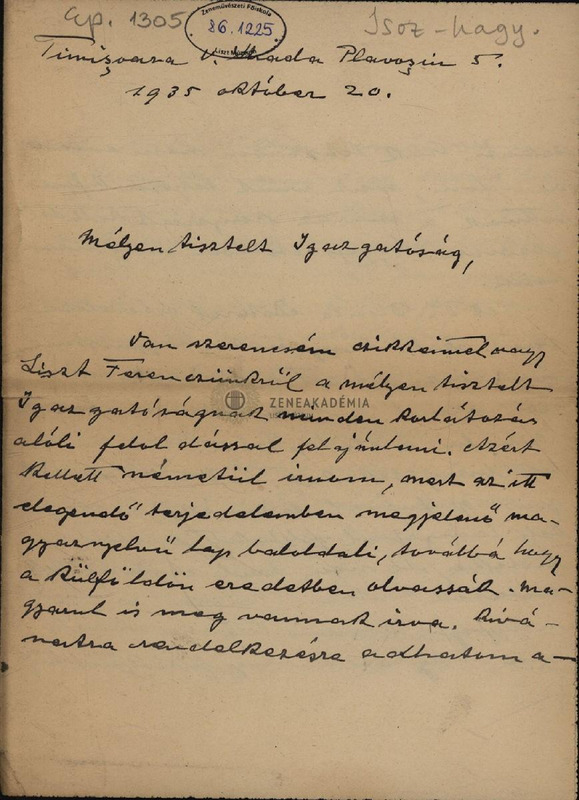 Ep. 1305
Isoz-hagy.
Zeneművészeti Főiskola
86.1225
Timişoara V. Plavoşin 5.
1935 október 20.
Mélyen tisztelt Igazgatóság,
Van szerencsém czikkeimet nagy
Liszt Ferenczünkről a mélyen tisztelt
Igazgatóságnak minden korlátozás
ZENEAKADÉMIA
alóli feloldással felajánlani. Azért
kellett németül irnom, mert az itt
elegendő terjedelemben megjelenő ma-
gyarnyelvű lap baloldali, továbbá hogy
a külföldön eredetben olvassák. Ma-
gyarul is meg vannak irva. Kivá-
natra rendelkezésre adhatom a-